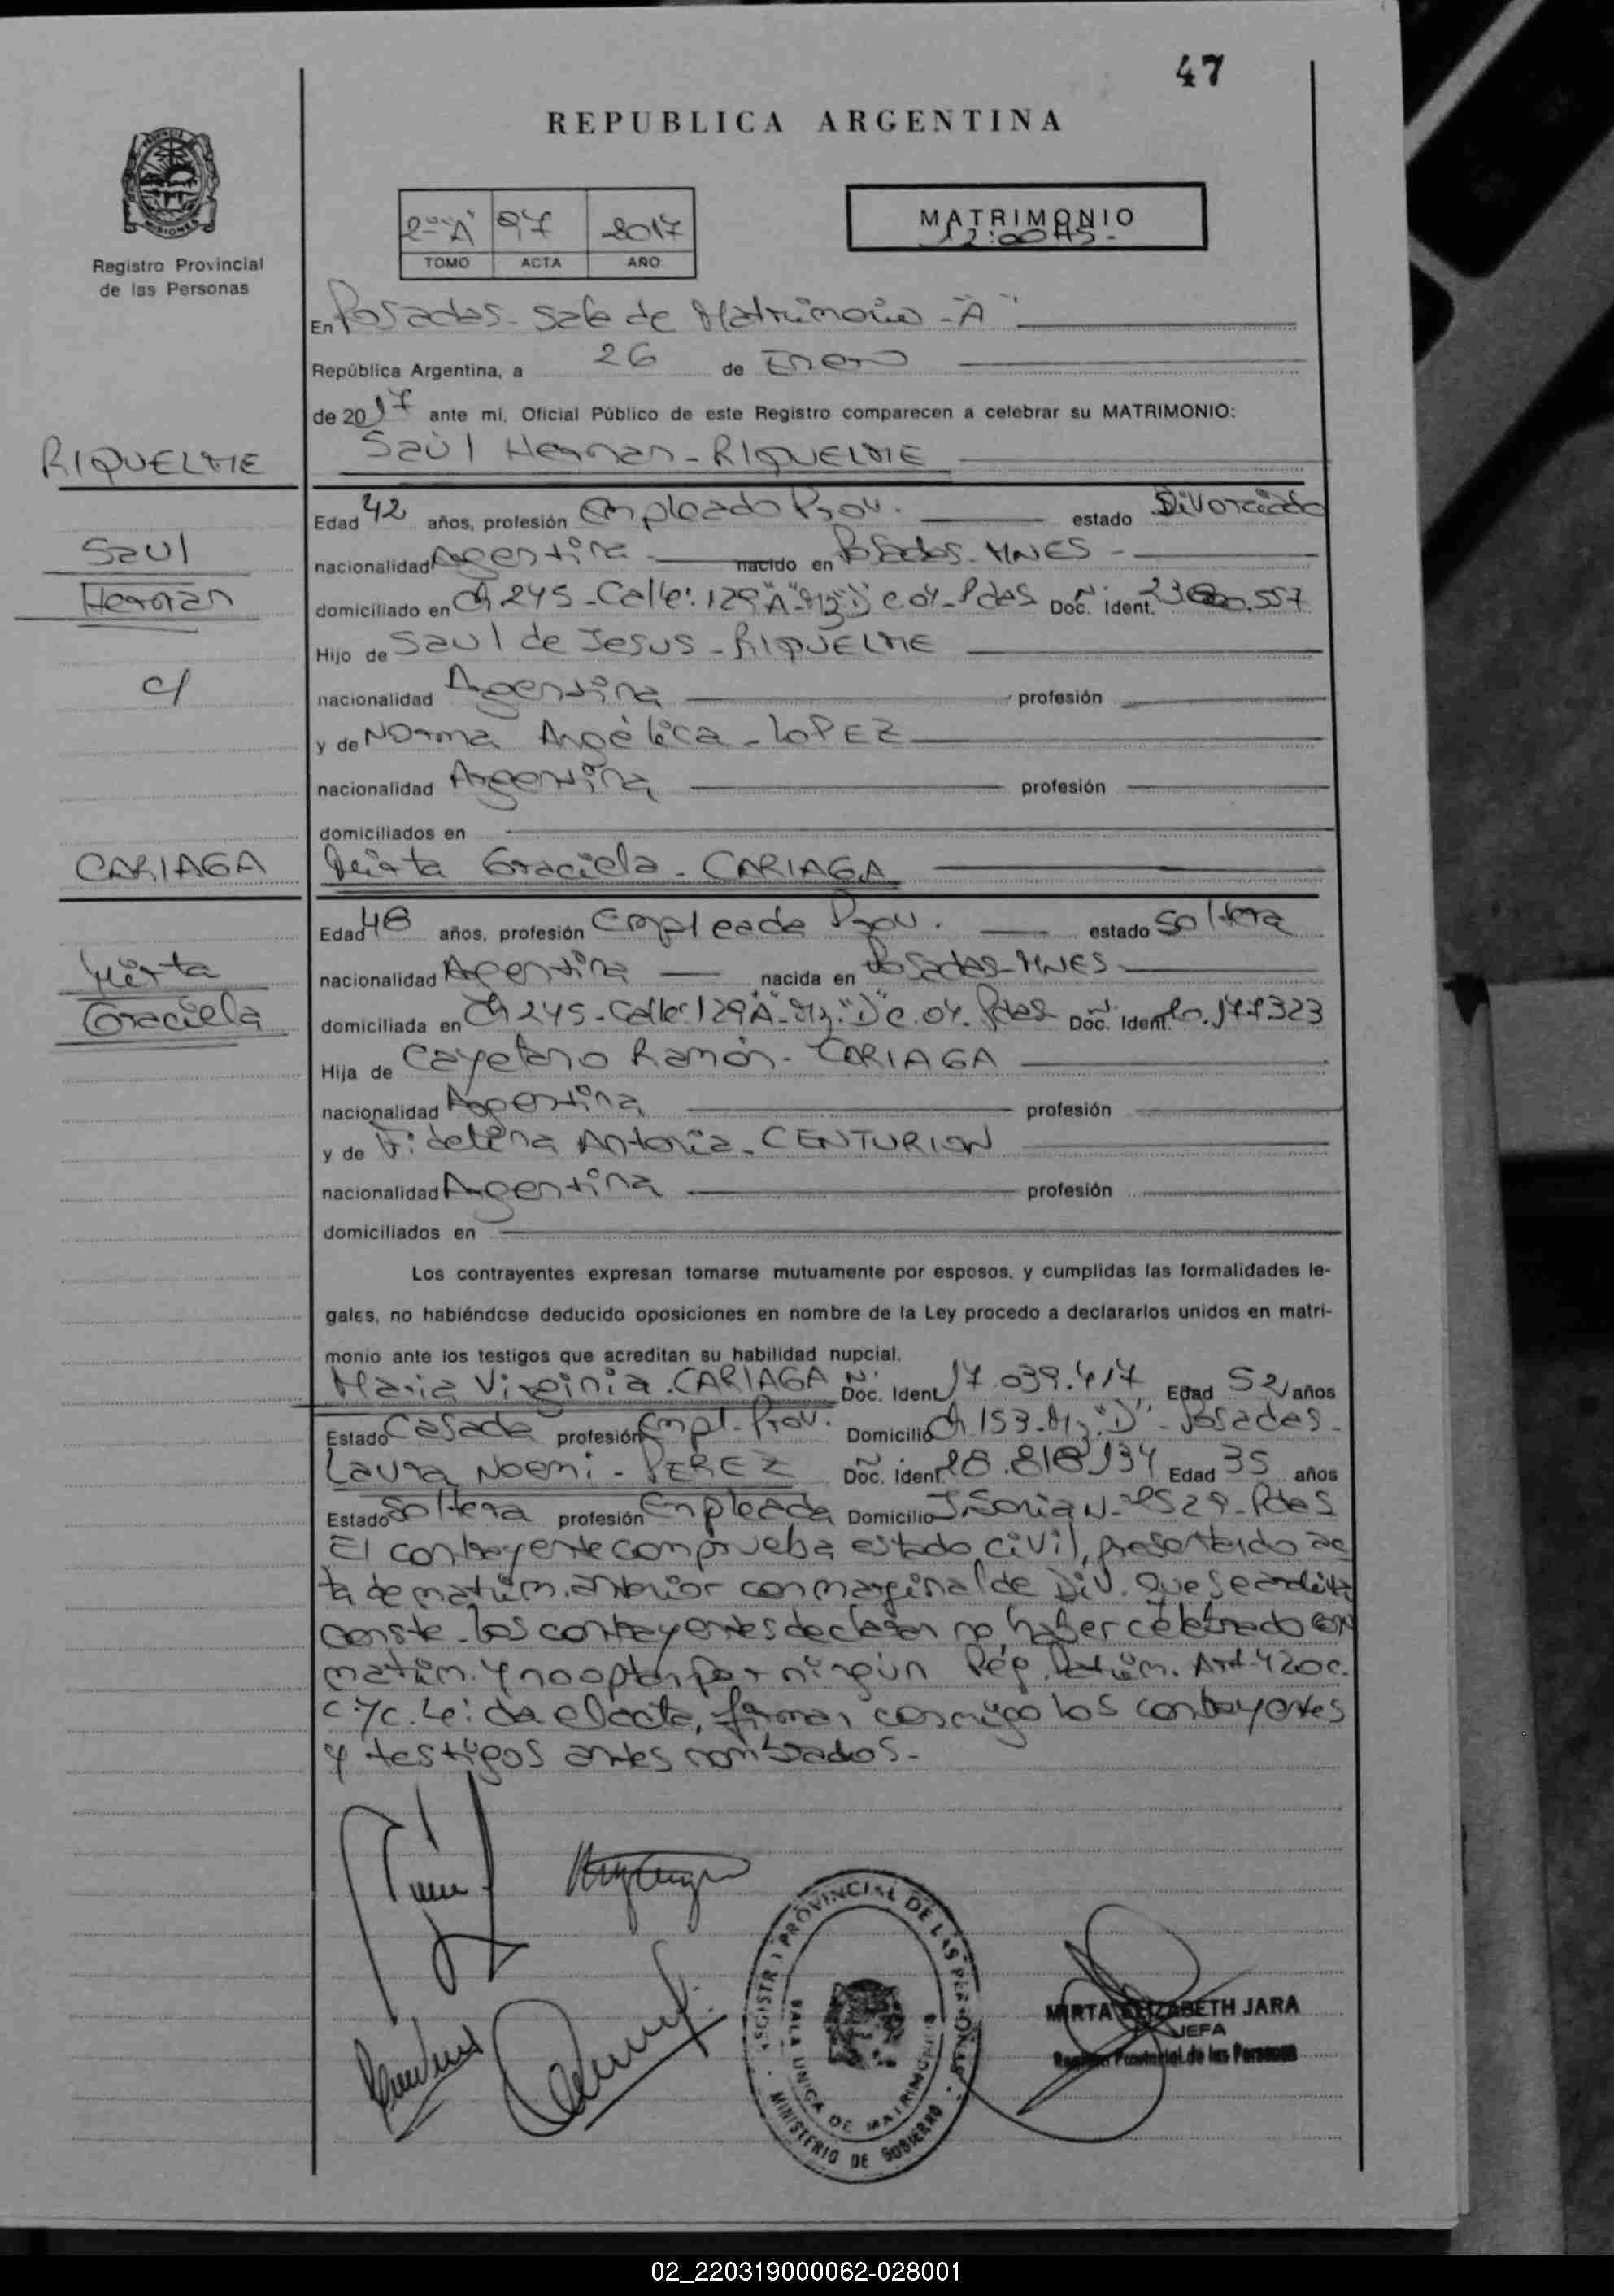 47
REPUBLICA ARGENTINA
2º "A" 97 2017
TOMO ACTA AÑO
MATRIMONIO
12:00 HS-
MISIONES
Registro Provincial
de las Personas
En Posadas - Sala de Matrimonio - "A"
República Argentina, a 26 de Enero
de 2017 ante mí, Oficial Público de este Registro comparecen a celebrar su MATRIMONIO:
RIQUELME
Saúl Hernan - RIQUELME
Edad 42 años, profesión Empleado Prov. estado Divorciado
Saul
nacionalidad Argentina nacido en Posados - MNES -
Hernan
domiciliado en Ch 245 - Calle: 129 "A" - Mz "D" C. 04 - Pdas Doc. Ident. .557
Hijo de Saul de Jesus - RIQUELME
c/
nacionalidad Argentina profesión
y de Norma Angélica - LOPEZ
nacionalidad Argentina profesión
domiciliados en
CARIAGA
Mirta Graciela - CARIAGA
Edad 48 años, profesión Empleada Prov. estado Soltera
Mirta
nacionalidad Argentina nacida en Posadas - MNES
Graciela
domiciliada en Ch 245 - Calle: 129 "A" - Mz. "D" C. 04 - Pdas Doc. Ident. 20.177323
Hija de Cayetano Ramón - CARIAGA
nacionalidad Argentina profesión
y de Fidelina Antonia - CENTURION
nacionalidad Argentina profesión
domiciliados en
Los contrayentes expresan tomarse mutuamente por esposos, y cumplidas las formalidades le-
gales, no habiéndose deducido oposiciones en nombre de la Ley procedo a declararlos unidos en matri-
monio ante los testigos que acreditan su habilidad nupcial.
Maria Virginia - CARIAGA Nº Doc. Ident. 17.039.417 Edad 52 años
Estado Casada profesión Empl. Prov. Domicilio Ch 153 - Mz. "D" - Posadas -
Laura Noemi - PEREZ Nº Doc. Ident. 28.818.134 Edad 35 años
Estado Soltera profesión Empleada Domicilio Nº 2529 - Pdas
El contrayente comprueba estado civil, presentando ac
ta de matrim. anterior con marginal de Div. que se archiva
conste - los contrayentes declaran no haber celebrado con
matrim. y no optan por ningún Rég. Patrim. Art. 420 c.
c.y c. Leída el acta, firman conmigo los contrayentes
y testigos antes nombrados -
REGISTRO PROVINCIAL DE LAS PERSONAS
SALA UNICA DE MATRIMONIOS
MINISTERIO DE GOBIERNO
MIRTA ELIZABETH JARA
JEFA
Registro Provincial de las Personas
02_220319000062-028001